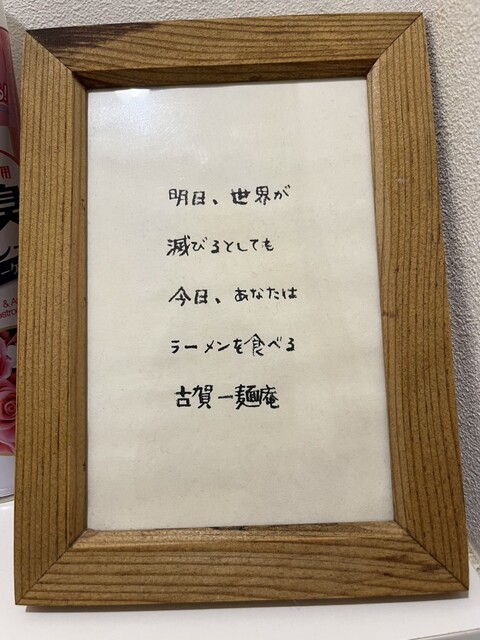 明日、世界が
滅びるとしても
今日、あなたは
ラーメンを食べる
古賀一麺庵
用
& A